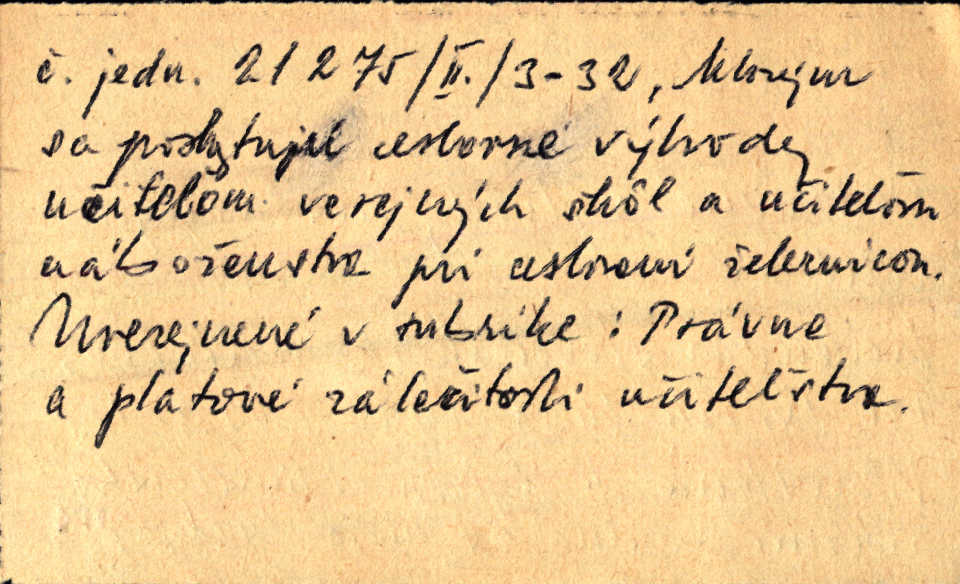 č. jedn. 21 275/II./3-32, ktorým
sa poskytujú cestovné výhody
učiteľom verejných škôl a učiteľom
náboženstva pri cestovaní železnicou.
Uverejnené v rubrike: Právne
a platové záležitosti učiteľstva.